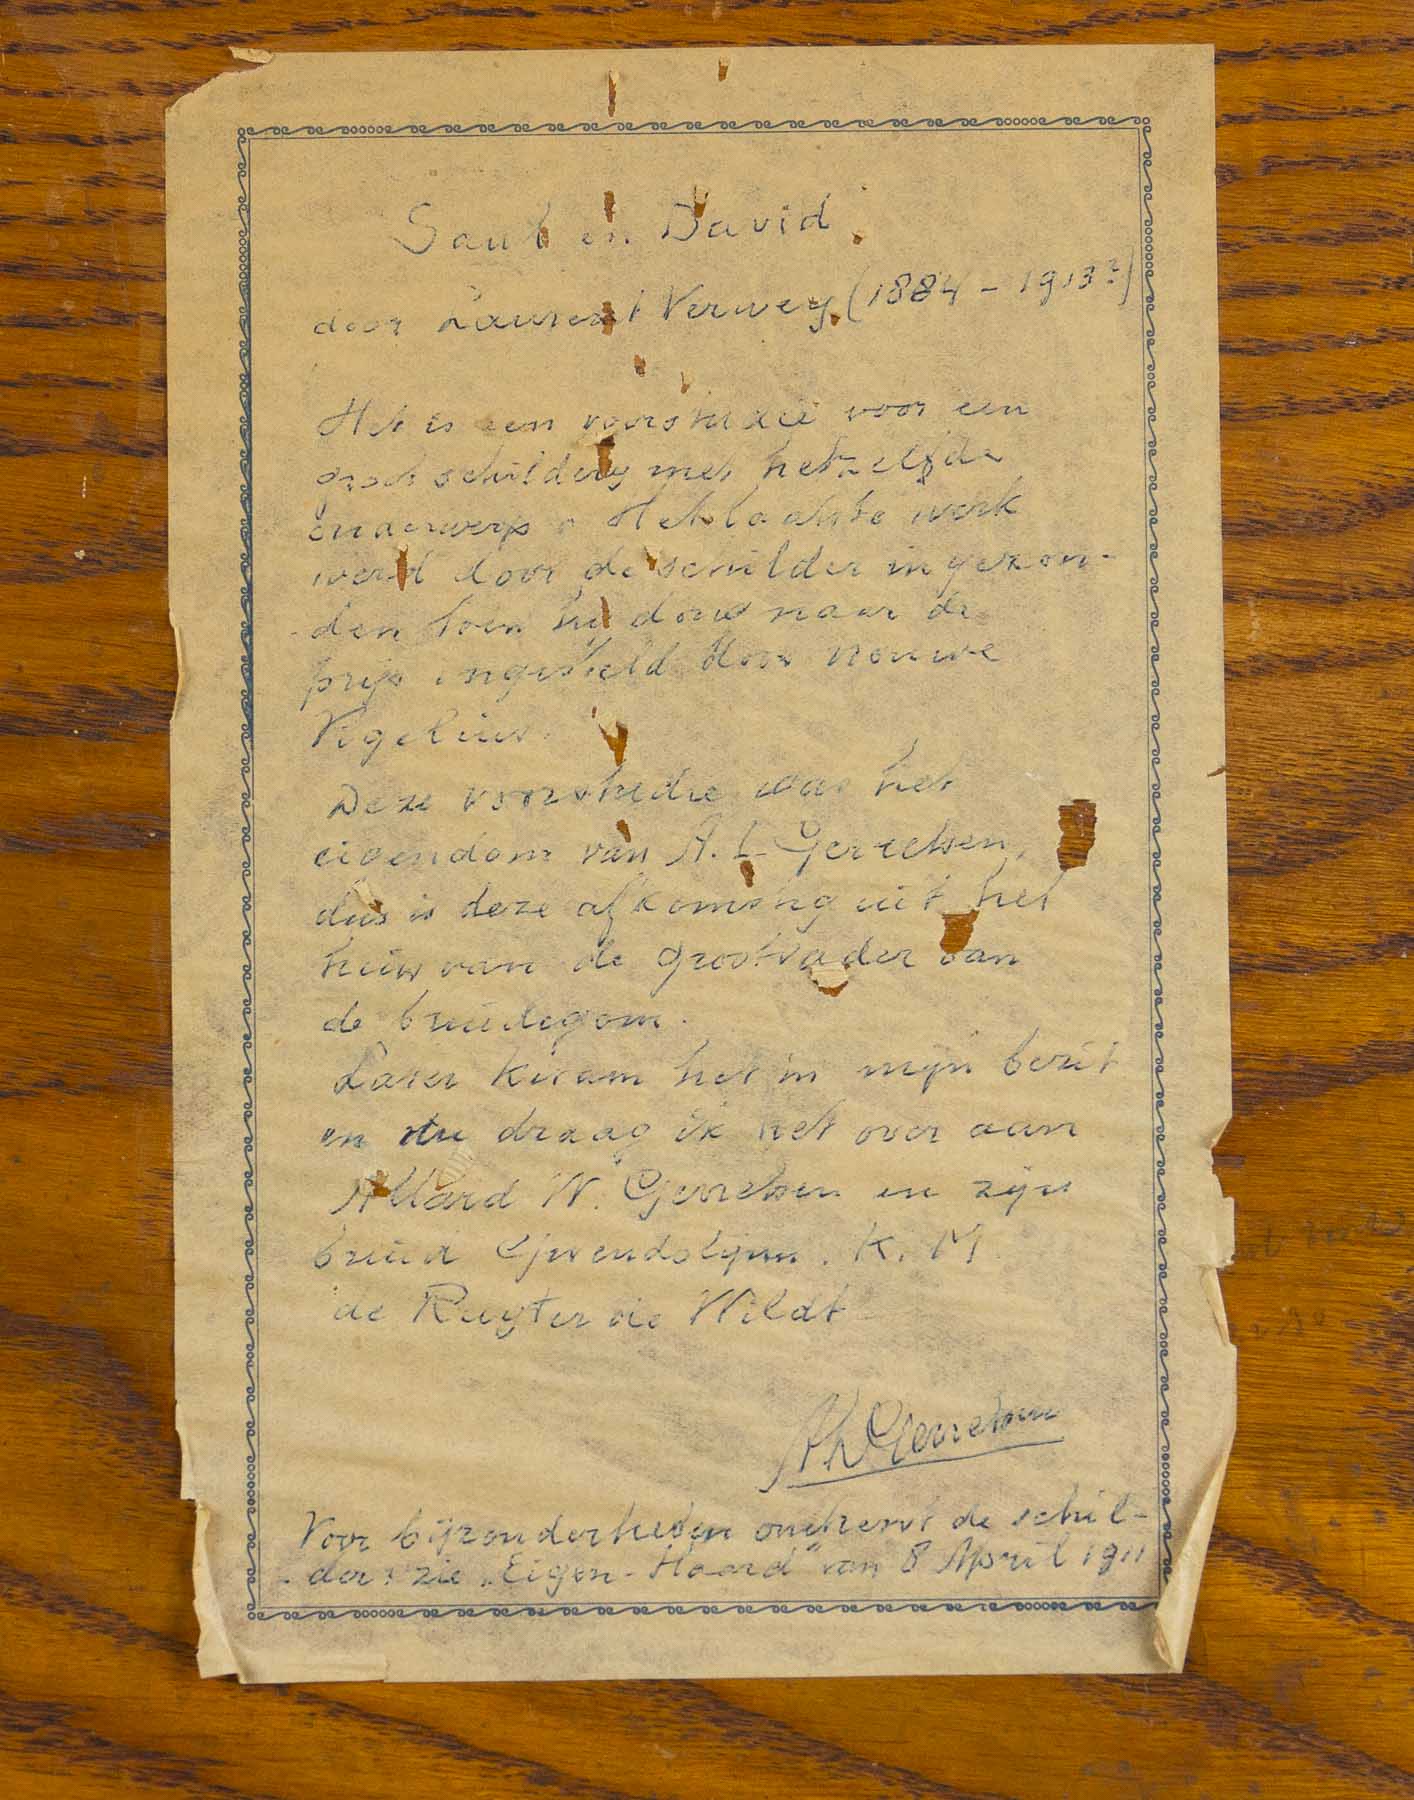 Saul en David
door Laurent Verwey (1884 - 1913?)
Het is een voorstudie voor een
groot schilderij met hetzelfde
onderwerp. Het laatste werk
werd door de schilder ingezon-
den toen hij dong naar de
prijs ingesteld door
Vigelius.
Deze voorstudie was het
eigendom van A. L. Gerretsen,
dus is deze afkomstig uit het
huis van de grootvader van
de bruidegom.
Later kwam het in mijn bezit
en nu draag ik het over aan
Allard W. Gerretsen en zijn
bruid Gwendolijnn. K. M.
de Ruyter de Wildt
Gerretsen
Voor bijzonderheden omtrent de schil-
der: zie "Eigen-Haard" van 8 April 1911